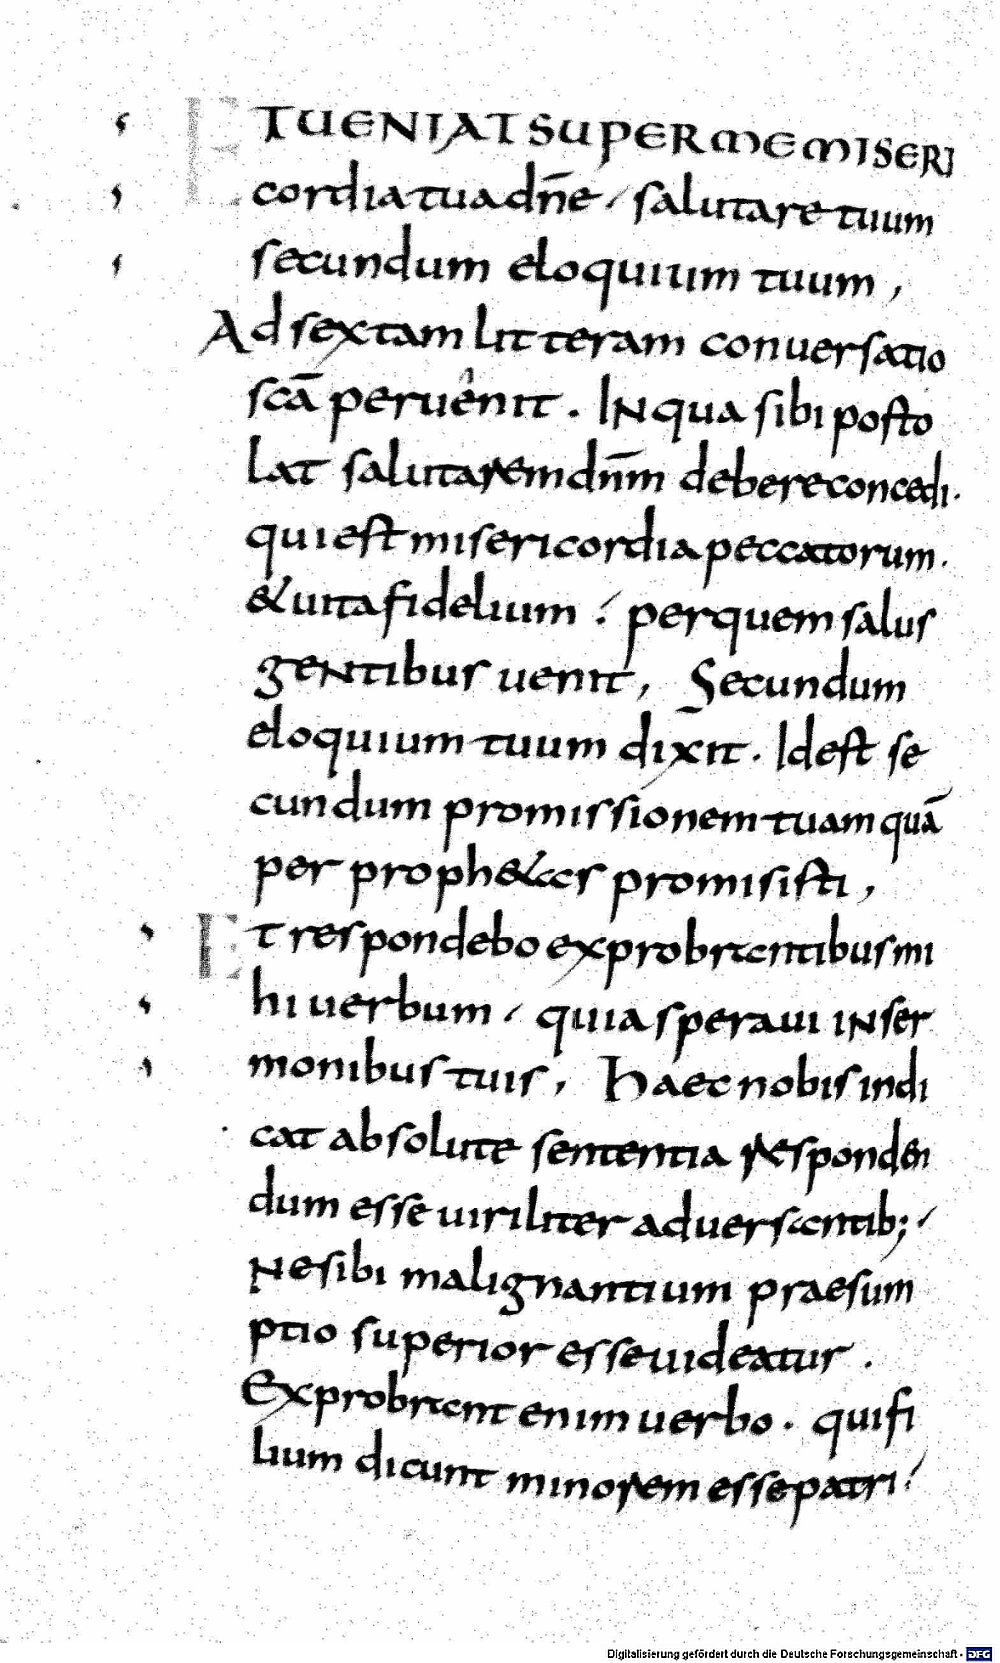 ET UENIAT SUPER ME MISERI
cordia tua dn̄e / salutare tuum
secundum eloquium tuum,
Ad sextam litteram conuersatio
scā peruenit. IN qua sibi posto
lat salutarem dn̄m debere concedi.
qui est misericordia peccatorum.
& uita fidelium / per quem salus
geNtibus uenit, Secundum
eloquium tuum dix̄it. Id est se
cundum promissionem tuam quā
per proph&as promisisti,
Et respondebo exprobrantibus mi
hi uerbum / quia speraui iN ser
monibus tuis, Haec nobis indi
cat absolute sententia responden
dum esse uiriliter aduersantib; /
Ne sibi malignantium praesum
ptio superior esse uideatur.
Exprobrant enim uerbo. qui fi
lium dicunt minorem esse patri /
Digitalisierung gefördert durch die Deutsche Forschungsgemeinschaft - DFG